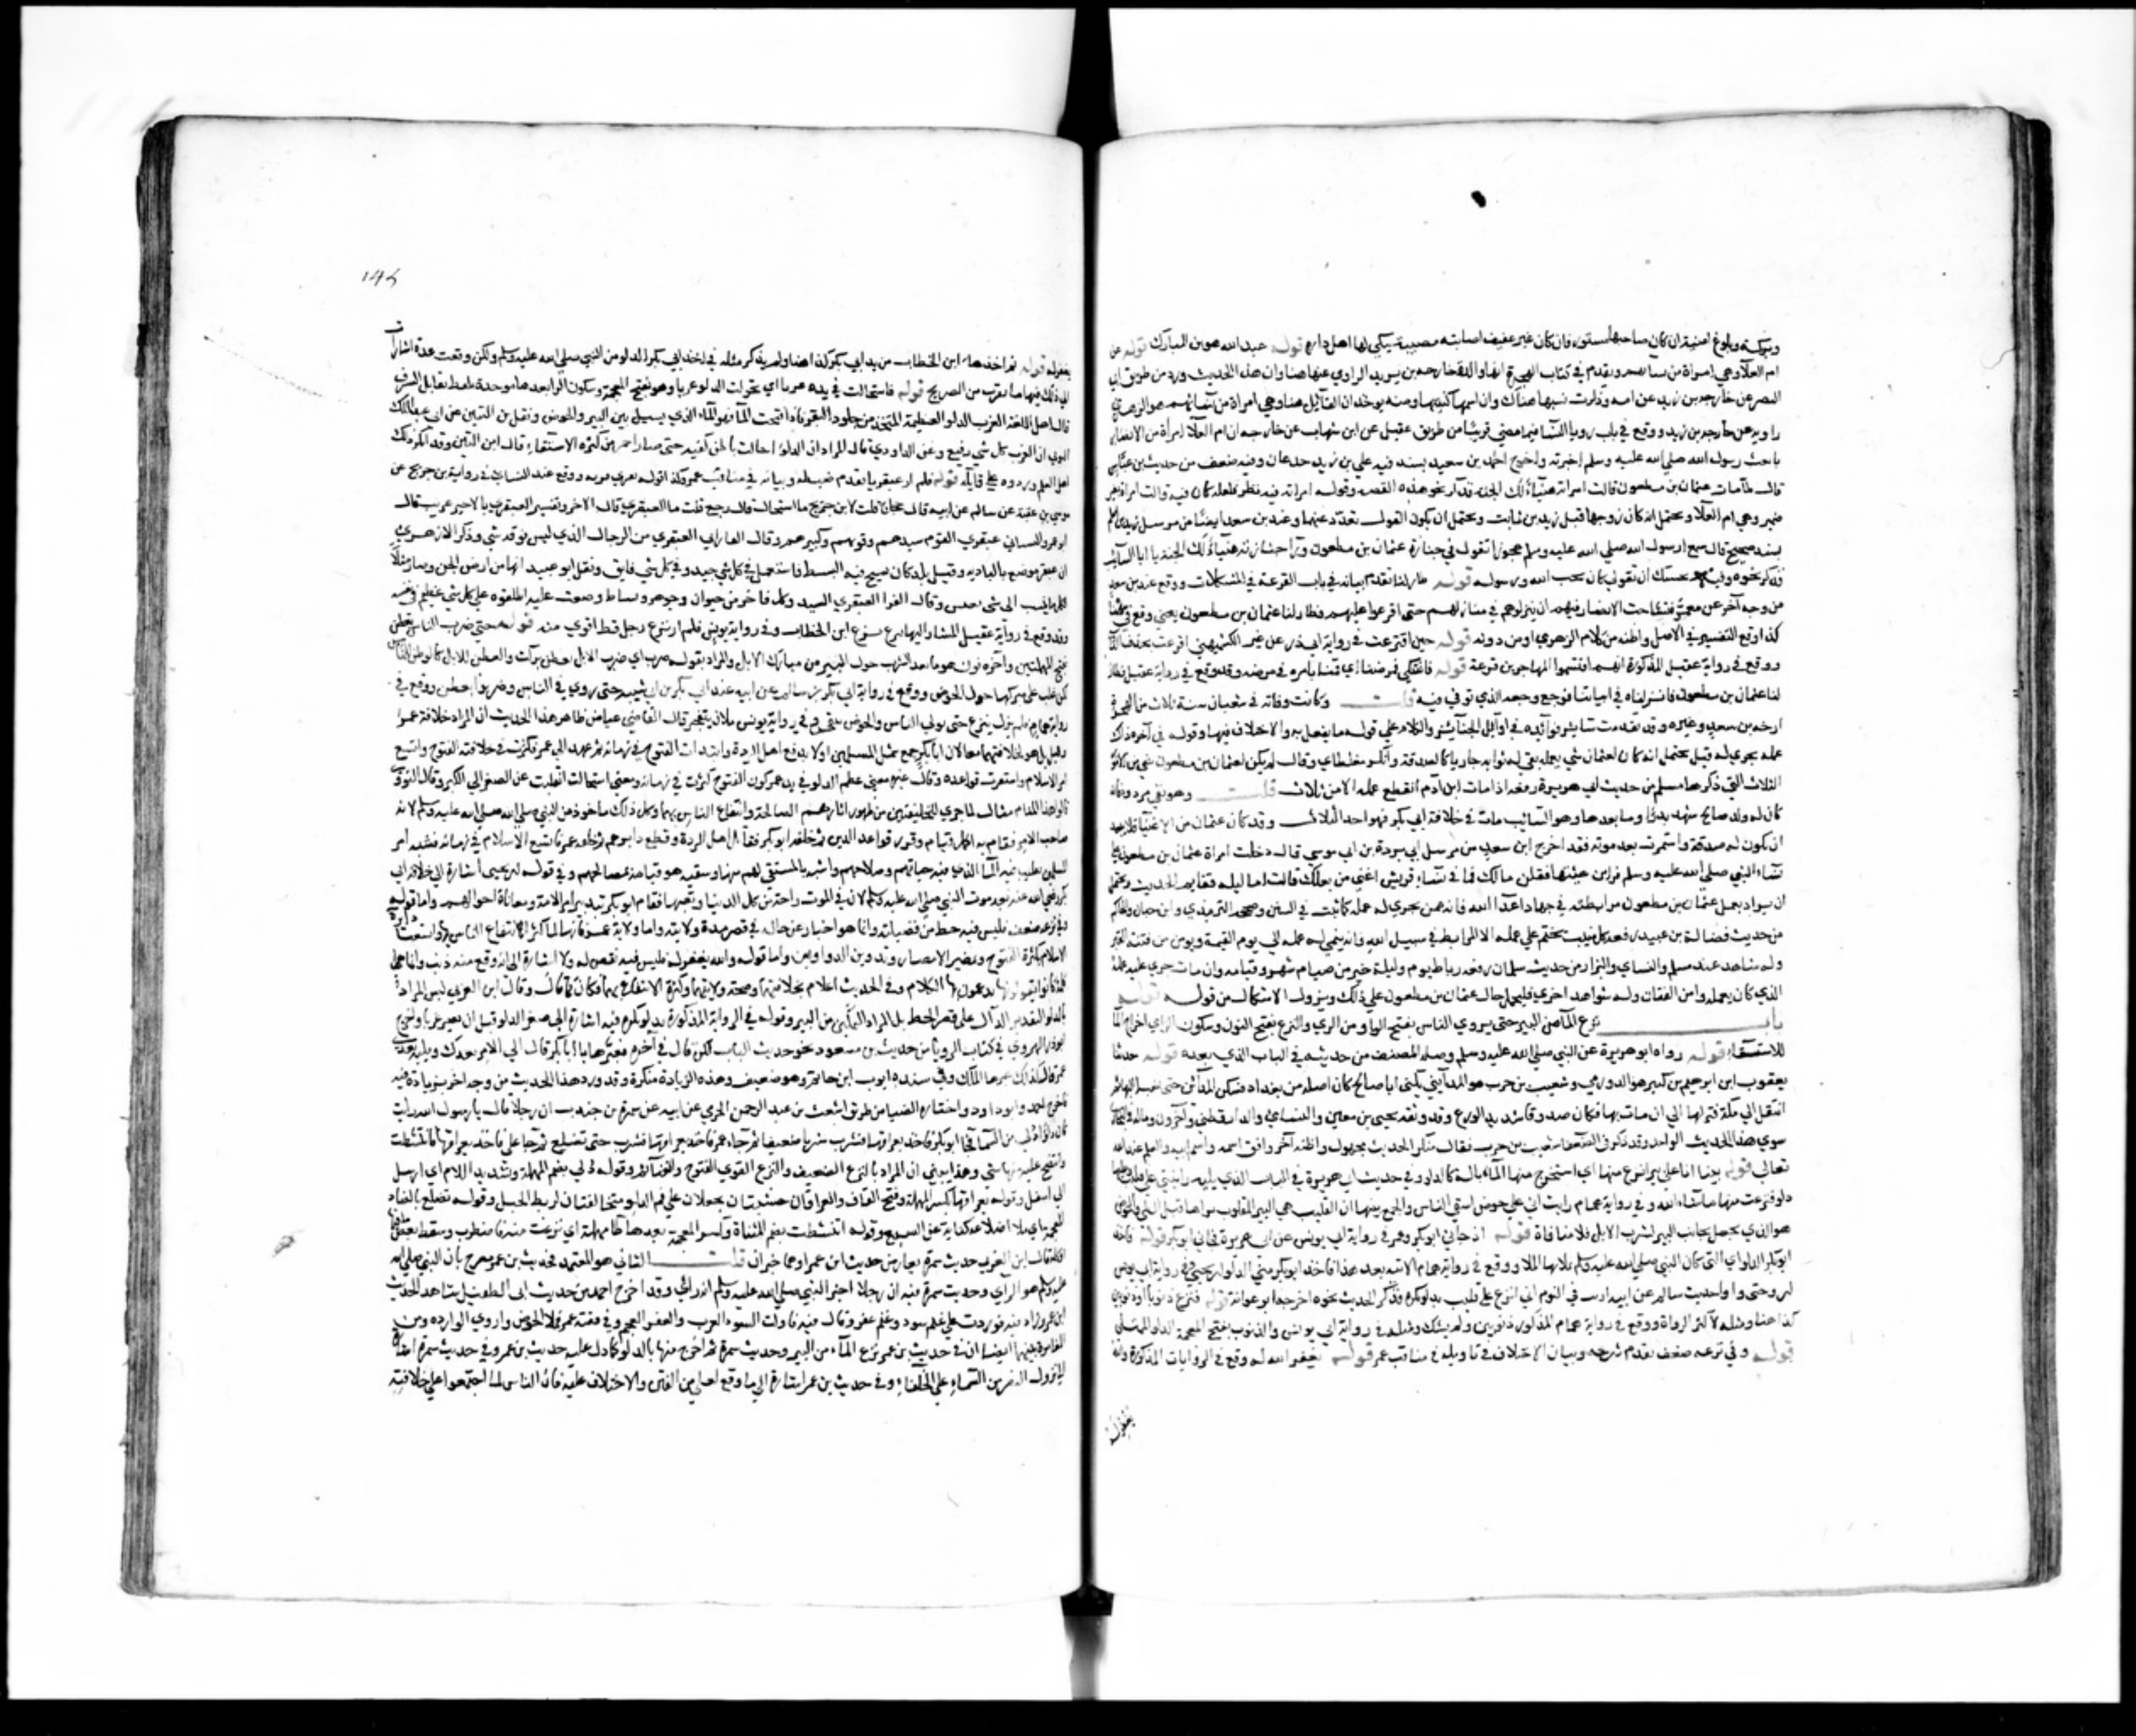 وبركة وبلوغ امنية ان كان صاحبها مستورا فان كان غير عفيف اصابته مصيبة يبكي لها اهل داره قوله عبد الله هو ابن المبارك قوله عن
ام العلاء وهي امراة من نسائهم وتقدم في كتاب الهجرة انها والدة خارجة بن زيد الراوي عنها هنا وان هذا الحديث ورد من طريق ابي
النضر عن خارجة بن زيد عن امه وذكرت نسبها هناك وان اسمها كنيتها ومنه يوخذ ان القائل هنا وهي امراة من نسائهم هو الزهري
راويه عن خارجة بن زيد ووقع في باب رويا النسا فيما مضي قريبا من طريق عقيل عن ابن شهاب عن خارجة ان ام العلا امراة من الانصار
بايعت رسول الله صلي الله عليه وسلم اخبرته واخرج احمد بن سعيد بسند فيه علي بن زيد بن جدعان وفيه ضعف من حديث بن عباس
قال لما مات عثمان بن مظعون قالت امراته هنيا لك الجنة فذكر نحو هذه القصة وقوله امراته فيه نظر فلعله كان فيه قالت امراة بغير
ضمير وهي ام العلا ويحتمل انه كان تزوجها قبل زيد بن ثابت ويحتمل ان يكون القول تعدد منهما وعند بن سعد ايضا من مرسل زيد بن اسلم
بسند صحيح قال سمع رسول الله صلي الله عليه وسلم عجوزا تقول في جنازة عثمان بن مظعون وراء جنازته هنيا لك الجنة يا ابا السائب
فذكر نحوه وفيه بحسبك ان تقولي كان يحب الله ورسوله قوله طار لنا تقدم بيانه في باب القرعة في المشكلات ووقع عند بن سعد
من وجه اخر عن معمر فتشاحت الانصار فيهم ان ينزلوهم في منازلهم حتي اقرعوا عليهم فطار لنا عثمان بن مظعون يعني وقع في سهمنا
كذا وقع التفسير في الاصل واظنه من كلام الزهري او من دونه قوله حين اقترعت في رواية ابي ذر عن غير الكشميهني اقرعت بحذف التا
ووقع في رواية عقيل المذكورة انهم اقتسموا المهاجرين قرعة قوله فاشتكي فمرضناه اي قمنا بامره في مرضه وقد وقع في رواية عقيل فطار
لنا عثمان بن مظعون فانزلناه في ابياتنا فوجع وجعه الذي توفي فيه قلت وكانت وفاته في شعبان سنة ثلاث من الهجرة
ارخه بن سعد وغيره وقد تقدمت سائر فوائده في اوائل الجنائز والكلام علي قوله ما يفعل به والاختلاف فيها وقوله في اخره ذاك
عمله يجري له قيل يحتمل انه كان لعثمان شي عمله بقي له ثوابه جاريا كالصدقة وانكره مغلطاي وقال لم يكن لعثمان بن مظعون شي من الامور
الثلاث التي ذكرها مسلم من حديث ابي هريرة رفعه اذا مات ابن ادم انقطع عمله الا من ثلاث قلت وهو نفي مردود فانه
كان له ولد صالح شهد بدرا وما بعدها وهو السائب مات في خلافة ابي بكر فهو احد الثلاث وقد كان عثمان من الاغنيا فلا يبعد
ان يكون له صدقة واستمرت بعد موته فقد اخرج ابن سعد من مرسل ابي بردة بن ابي موسي قال دخلت امراة عثمان بن مظعون علي
نساء النبي صلي الله عليه وسلم فراين هيئتها فقلن مالك فما في نساء قريش اغني من بعلك قالت اما ليله فقائم الحديث ويحتمل
ان يراد بعمل عثمان بن مظعون مرابطته في جهاد اعداء الله فانه ممن يجري له عمله كما ثبت في السنن وصححه الترمذي وابن حبان والحاكم
من حديث فضالة بن عبيد رفعه كل ميت يختم علي عمله الا المرابط في سبيل الله فانه ينمي له عمله الي يوم القيمة ويومن من فتنة القبر
وله شاهد عند مسلم والنساي والبزار من حديث سلمان رفعه رباط يوم وليلة خير من صيام شهر وقيامه وان مات جري عليه عمله
الذي كان يعمله وامن الفتان وله شواهد اخري فليحمل حال عثمان بن مظعون علي ذلك ويزول الاشكال من قوله قوله
باب نزع الماء من البير حتي يروي الناس بفتح الواو من الري والنزع بفتح النون وسكون الزاي اخراج الما
للاستسقاء قوله رواه ابو هريرة عن النبي صلي الله عليه وسلم وصله المصنف من حديثه في الباب الذي بعده قوله حدثنا
يعقوب ابن ابراهيم بن كثير هو الدورقي وشعيب بن حرب هو المدايني يكني ابا صالح كان اصله من بغداد فسكن المدائن حتي نسب اليها ثم
انتقل الي مكة فنزلها الي ان مات بها وكان صدوقا شديد الورع وقد وثقه يحيي بن معين والنساي والدارقطني واخرون وما له في البخاري
سوي هذا الحديث الواحد وقد ذكره في الضعفا شعيب بن حرب فقال منكر الحديث مجهول واظنه اخر وافق اسمه واسم ابيه والعلم عند الله
تعالي قوله بينا انا علي بير انزع منها اي استخرج منها الماء بالة كالدلو وفي حديث ابي هريرة في الباب الذي يليه رايتني علي قليب وعليها
دلو فنزعت منها ما شاء الله وفي رواية همام رايت اني علي حوض اسقي الناس والجمع بينهما ان القليب هي البير المقلوب ترابها قبل الطي والحوض
هو الذي يجعل بجانب البير لشرب الابل فلا منافاة قوله اذ جاني ابو بكر وعمر في رواية ابي يونس عن ابي هريرة فجاني ابو بكر قوله فاخذ
ابو بكر الدلو اي التي كان النبي صلي الله عليه وسلم يملا بها الماء ووقع في رواية همام الاتية بعد هذا فاخذ ابو بكر مني الدلو ليريحني وفي رواية ابي يونس
ليروحني واول حديث سالم عن ابيه اريت في النوم اني انزع علي قليب بدلو بكرة فذكر الحديث نحوه اخرجه ابو عوانة قوله فنزع ذنوبا او ذنوبين
كذا هنا ومثله لاكثر الرواة ووقع في رواية همام المذكورة ذنوبين ولم يشك ومثله في رواية ابي يونس والذنوب بفتح المعجمة الدلو الممتلي
قوله وفي نزعه ضعف تقدم شرحه وبيان الاختلاف في تاويله في مناقب عمر قوله يغفر الله له وقع في الروايات المذكورة والله
يغفر له
۱۴۵
يغفر له قوله ثم اخذها ابن الخطاب من يد ابي بكر كذا هنا ولم يذكر مثله في اخذ ابي بكر الدلو من النبي صلي الله عليه وسلم ولكن وقعت عدة اشارات
الي ذلك فيها ما يقرب من الصريح قوله فاستحالت في يده غربا اي تحولت الدلو غربا وهو بفتح المعجمة وسكون الراء بعدها موحدة بلفظ مقابل الشرق
قال اهل اللغة الغرب الدلو العظيمة المتخذة من جلود البقر فاذا فتحت الراء فهو الماء الذي يسيل بين البير والحوض ونقل بن التين عن ابي عبد الملك
البوني ان الغرب كل شي رفيع وعن الداودي قال المراد ان الدلو احالت باطن كفيه حتي صار احمر من كثرة الاستقاء قال ابن التين وقد انكر ذلك
اهل العلم وردوه علي قايله قوله فلم ار عبقريا تقدم ضبطه وبيانه في مناقب عمر وكذا قوله يفري فريه ووقع عند النساي في رواية بن جريج عن
موسي بن عقبة عن سالم عن ابيه قال حجاج قلت لابن جريج ما استحال قال رجع قلت ما العبقري قال الاجير وتفسير العبقري بالاجير غريب قال
ابو عمرو الشيباني عبقري القوم سيدهم وقويهم وكبيرهم وقال الفارابي العبقري من الرجال الذي ليس فوقه شي وذكر الازهري
ان عبقر موضع بالبادية وقيل بلد كان ينسج فيه البسط فاستعمل في كل شي جيد وفي كل شي فايق ونقل ابو عبيد انها من ارض الجن وصار مثلا
لكل ما ينسب الي شي نفيس وقال الفرا العبقري السيد وكل فاخر من حيوان وجوهر وبساط وضعت عليه اطلقوه علي كل شي عظيم في نفسه
وقد وقع في رواية عقيل المشار اليها ينزع نزع ابن الخطاب وفي رواية يونس فلم ار نزع رجل قط اقوي منه قوله حتي ضرب الناس بعطن
بفتح المهملتين واخره نون هو ما يعد للشرب حول البير من مبارك الابل والمراد بقوله ضرب اي ضرب الابل بعطن بركت والعطن للابل كالوطن للناس
لكن غلب علي مبركها حول الحوض ووقع في رواية ابي بكر بن سالم عن ابيه عند ابي بكر بن ابي شيبة حتي روي الناس وضربوا بعطن ووقع في
رواية همام فلم يزل ينزع حتي تولي الناس والحوض يتفجر وفي رواية يونس ملان يتفجر قال القاضي عياض ظاهر هذا الحديث ان المراد خلافة عمر
وقيل بل هو لخلافتهما معا لان ابا بكر جمع شمل المسلمين اولا بدفع اهل الردة وابتدات الفتوح في زمانه ثم عهد الي عمر فكثرت في خلافته الفتوح واتسع
امر الاسلام واستقرت قواعده وقال غيره معني عظم الدلو في يد عمر كون الفتوح كثرت في زمانه ومعني استحالت انقلبت عن الصغر الي الكبر وقال النووي
قالوا هذا المنام مثال لما جري للخليفتين من ظهور اثارهم الصالحة وانتفاع الناس بهما وكل ذلك ماخوذ من النبي صلي الله عليه وسلم لانه
صاحب الامر فقام به اكمل قيام وقرر قواعد الدين ثم خلفه ابو بكر فقاتل اهل الردة وقطع دابرهم ثم خلفه عمر فاتسع الاسلام في زمانه فشبه امر
المسلمين بقليب فيه الماء الذي فيه حياتهم وصلاحهم وشبه بالمستقي لهم منها وسقيه هو قيامه بمصالحهم وفي قوله ليريحني اشارة الي خلافة ابي
بكر رضي الله عنه بعد موت النبي صلي الله عليه وسلم لان في الموت راحة من كدر الدنيا وتعبها فقام ابو بكر بتدبير امر الامة ومعاناة احوالهم واما قوله
وفي نزعه ضعف فليس فيه حط من فضيلته وانما هو اخبار عن حاله في قصر مدة ولايته واما ولاية عمر فانها لما كثر انتفاع الناس واتسعت دايرة
الاسلام بكثرة الفتوح وتمصير الامصار وتدوين الدواوين واما قوله والله يغفر له فليس فيه نقص له ولا اشارة الي انه وقع منه ذنب وانما هي
كلمة كانوا يقولونها يدعمون بها الكلام وفي الحديث اعلام بخلافتهما وصحة ولايتهما وكثرة الانتفاع بهما وكان كما قال وقال ابن العربي ليس المراد
بالدلو التقدير الدال علي قصر الحظ بل المراد التمكن من البير وقوله في الرواية المذكورة بدلو بكرة فيه اشارة الي صغر الدلو قبل ان يصير غربا واخرج
ابو ذر الهروي في كتاب الرويا من حديث بن مسعود نحو حديث الباب لكن قال في اخره فعبرها يا ابا بكر قال الي الامر بعدك ويليه بعدي
عمر قال كذلك عبرها الملك وفي سنده ايوب ابن جابر وهو ضعيف وهذه الزيادة منكرة وقد ورد هذا الحديث من وجه اخر بزيادة فيه
فاخرج احمد وابو داود واختاره الضيا من طريق اشعث بن عبد الرحمن الجرمي عن ابيه عن سمرة بن جندب ان رجلا قال يا رسول الله رايت
كان دلوا دلي من السماء فجا ابو بكر فاخذ بعراقيها فشرب شربا ضعيفا ثم جاء عمر فاخذ بعراقيها فشرب حتي تضلع ثم جا علي فاخذ بعراقيها فانتشطت
وانتضح عليه منها شي وهذا يبين ان المراد بالنزع الضعيف والنزع القوي الفتوح والغنائم وقوله دلي بضم المهملة وتشديد اللام اي ارسل
الي اسفل وقوله بعراقيها بكسر المهملة وفتح القاف والعراقان خشبتان يجعلان علي فم الدلو متخالفتان لربط الحبل وقوله تضلع بالضاد
المعجمة اي ملا اضلاعه كناية عن الشبع وقوله انتشطت بضم المثناة وكسر المعجمة بعدها طا مهملة اي نزعت منه فاضطرب وسقط بعض ما فيها
او كله قال ابن العربي حديث سمرة يعارض حديث ابن عمر وهما خبران قلت الثاني هو المعتمد فحديث بن عمر مصرح بان النبي صلي الله
عليه وسلم هو الرآي وحديث سمرة فيه ان رجلا اخبر النبي صلي الله عليه وسلم انه راي وقد اخرج احمد من حديث ابي الطفيل شاهدا لحديث
ابن عمر وزاد فيه فوردت علي غنم سود وغنم عفر وقال فيه فاولت السود العرب والعفر العجم وفي قصة عمر فملا الحوض واروي الواردة ومن
المغايرة بينهما ايضا ان في حديث بن عمر نزع الماء من البير وحديث سمرة فيه نزول الماء من السما
اشارة الي نزول النصر من السماء علي الخلفاء وفي حديث بن عمر اشارة الي ما وقع لعلي من الفتن والاختلاف عليه فان الناس لما اجتمعوا علي خلافته